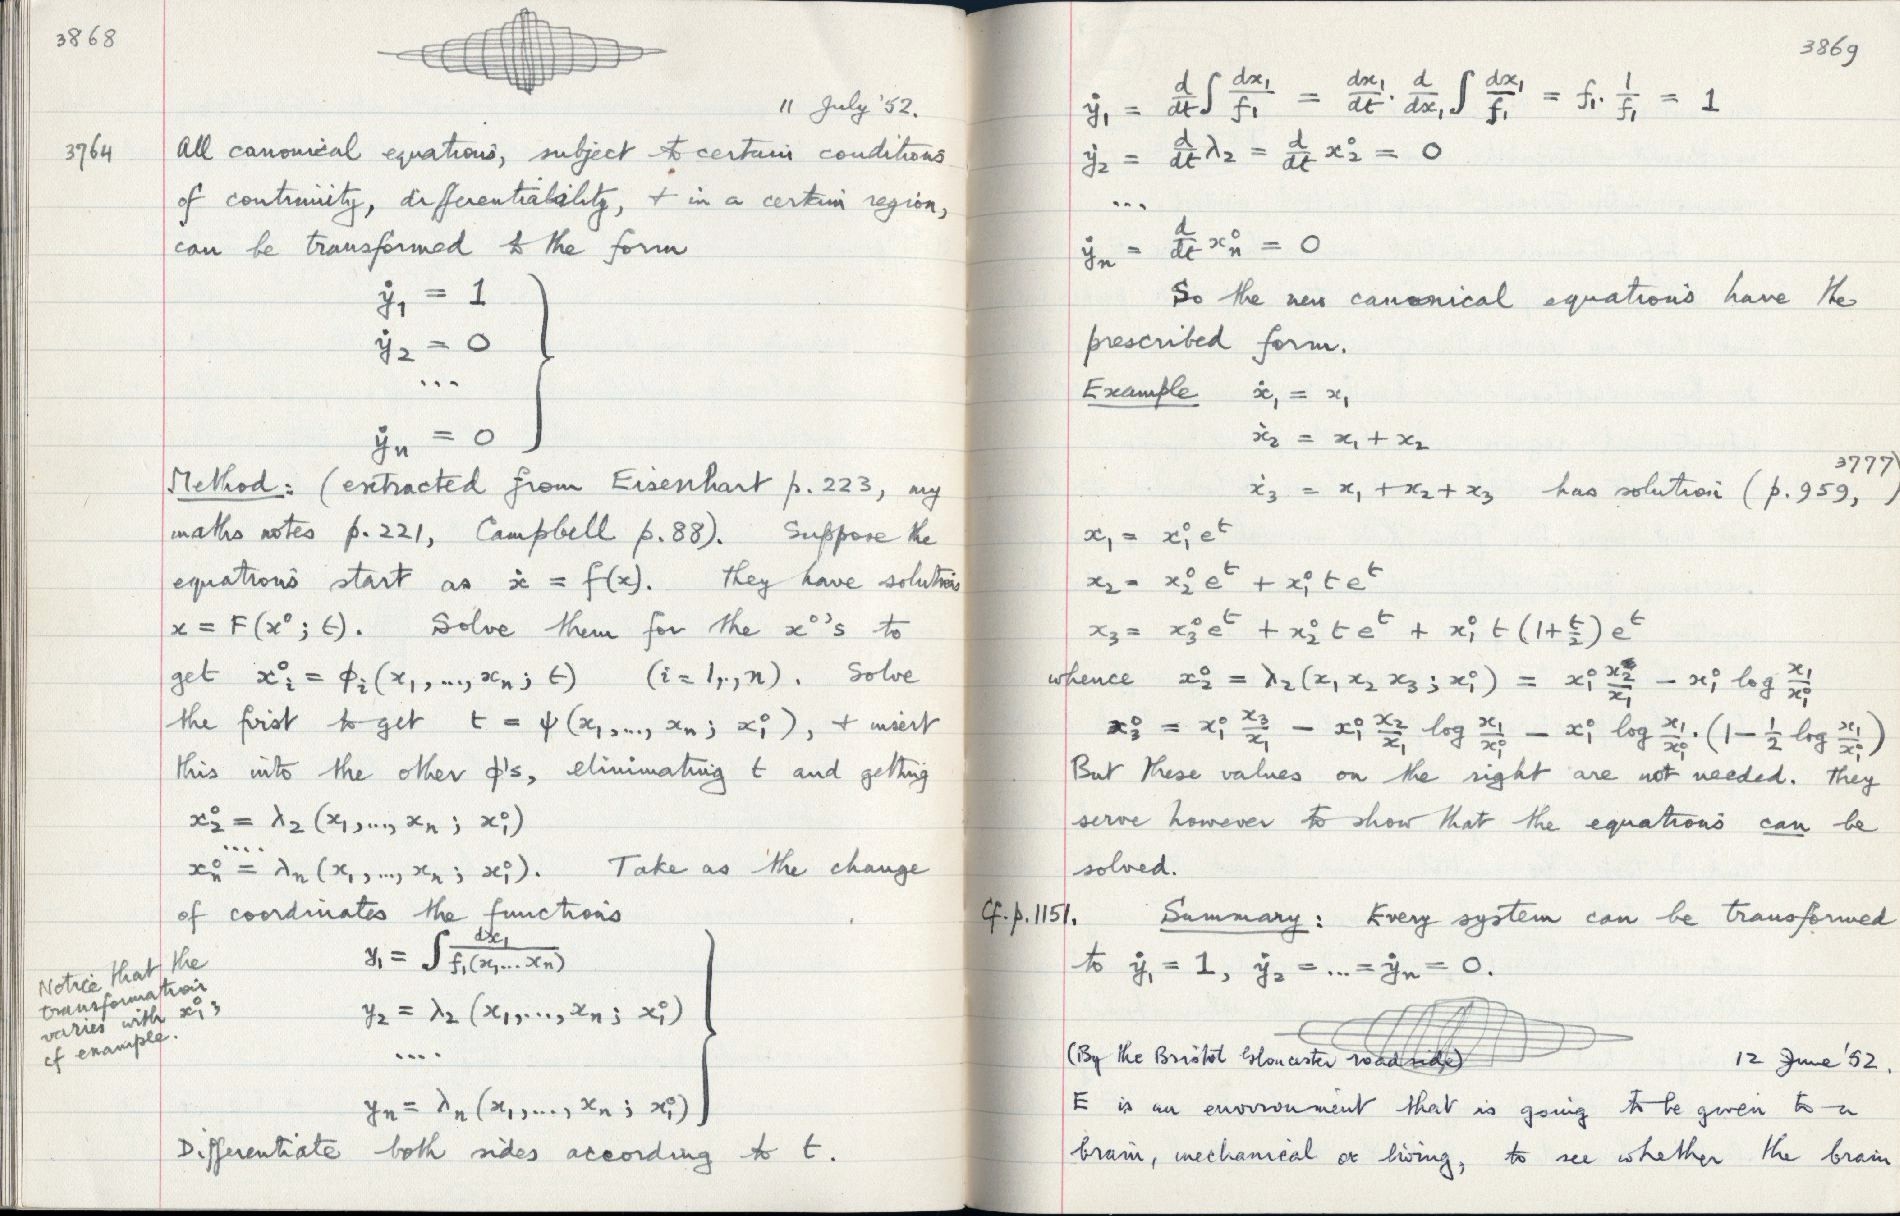 3868
11 July '52.
3764
All canonical equations, subject to certain conditions
of continuity, differentiability, + in a certain region,
can be transformed to the form
ẏ₁ = 1
ẏ₂ = 0
...
ẏₙ = 0
Method: (extracted from Eisenhart p. 223, my
maths notes p. 221, Campbell p. 88). Suppose the
equations start as ẋ = f(x). They have solutions
x = F(x⁰; t). Solve them for the x⁰'s to
get x⁰ᵢ = ϕᵢ(x₁, ..., xₙ; t) (i = 1,..,n). Solve
the first to get t = ψ(x₁, ..., xₙ; x₁⁰), + insert
this into the other ϕ's, eliminating t and getting
x₂⁰ = λ₂(x₁, ..., xₙ; x₁⁰)
....
xₙ⁰ = λₙ(x₁, ..., xₙ; x₁⁰). Take as the change
of coordinates the functions
y₁ = ∫ dx₁/f₁(x₁...xₙ)
y₂ = λ₂(x₁, ..., xₙ; x₁⁰)
....
yₙ = λₙ(x₁, ..., xₙ; x₁⁰)
Notice that the
transformation
varies with x₁⁰;
cf example.
Differentiate both sides according to t.
3869
ẏ₁ = d/dt ∫ dx₁/f₁ = dx₁/dt · d/dx₁ ∫ dx₁/f₁ = f₁ · 1/f₁ = 1
ẏ₂ = d/dt λ₂ = d/dt x₂⁰ = 0
...
ẏₙ = d/dt xₙ⁰ = 0
So the new canonical equations have the
prescribed form.
Example ẋ₁ = x₁
ẋ₂ = x₁ + x₂
ẋ₃ = x₁ + x₂ + x₃ has solution (p. 959, 3777)
x₁ = x₁⁰ eᵗ
x₂ = x₂⁰ eᵗ + x₁⁰ t eᵗ
x₃ = x₃⁰ eᵗ + x₂⁰ t eᵗ + x₁⁰ t (1 + t/2) eᵗ
whence x₂⁰ = λ₂(x₁ x₂ x₃; x₁⁰) = x₁⁰ x₂/x₁ − x₁⁰ log x₁/x₁⁰
x₃⁰ = x₁⁰ x₃/x₁ − x₁⁰ x₂/x₁ log x₁/x₁⁰ − x₁⁰ log x₁/x₁⁰ · (1 − ½ log x₁/x₁⁰)
But these values on the right are not needed. They
serve however to show that the equations can be
solved.
Cf. p. 1151. Summary: Every system can be transformed
to ẏ₁ = 1, ẏ₂ = ... = ẏₙ = 0.
(By the Bristol Gloucester road side) 12 June '52.
E is an environment that is going to be given to a
brain, mechanical or living, to see whether the brain